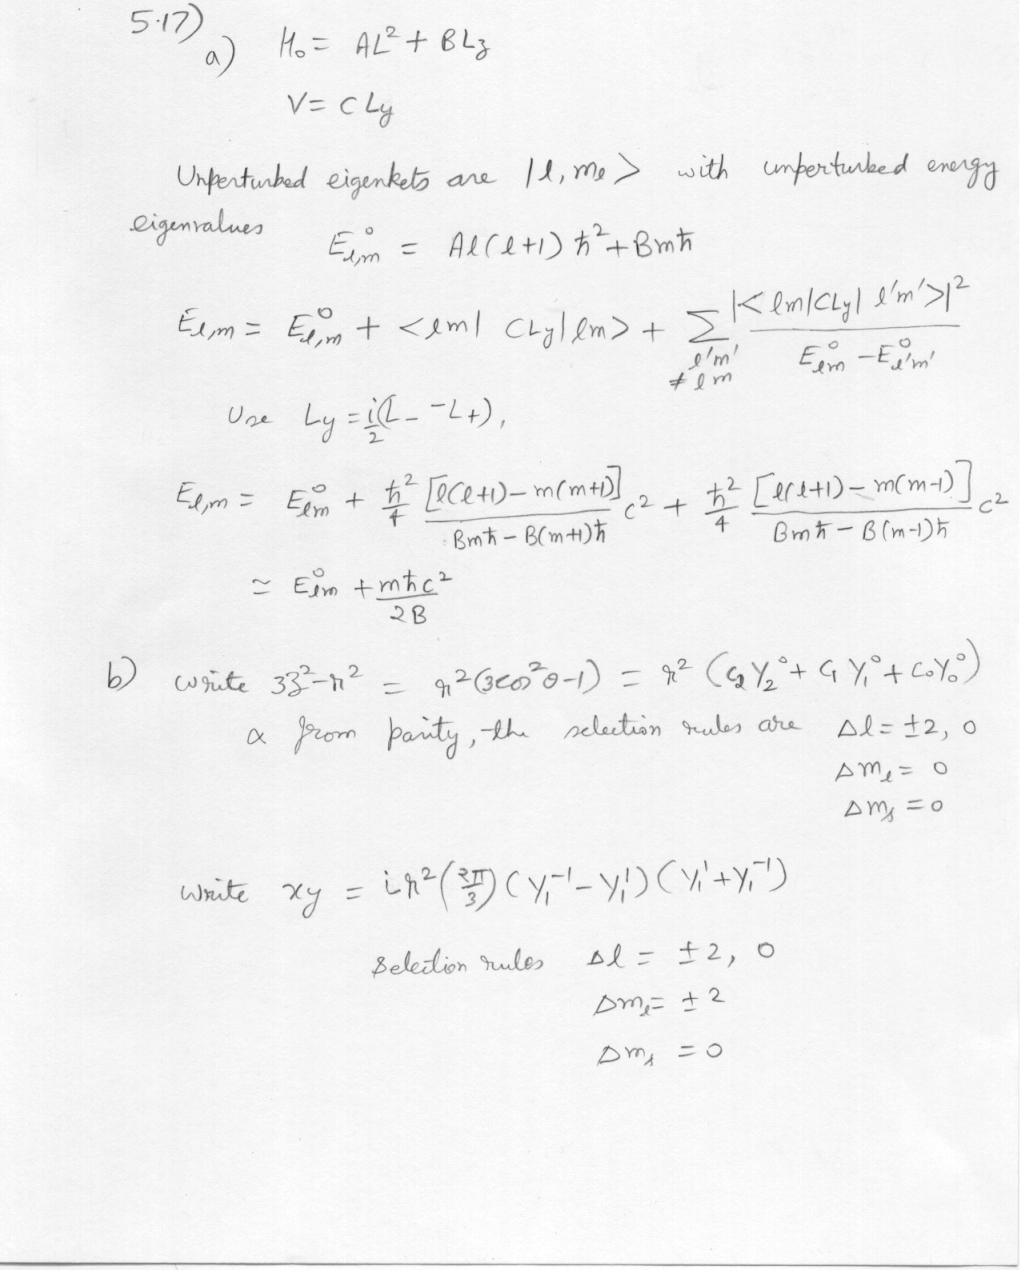 5.17)
a) H₀ = AL² + BL𝓏
V = C Ly
Unperturbed eigenkets are |l, mₑ> with unperturbed energy
eigenvalues
E⁰ₗ,ₘ = Al(l+1)ħ² + Bmħ
Eₗ,ₘ = E⁰ₗ,ₘ + <lm| CLy|lm> + Σ_{l'm' ≠ lm} |<lm|CLy| l'm'>|² / (E⁰ₗₘ − E⁰ₗ'ₘ')
Use Ly = i/2 (L₋ − L₊),
Eₗ,ₘ = E⁰ₗₘ + ħ²/4 [l(l+1) − m(m+1)] / (Bmħ − B(m+1)ħ) c² + ħ²/4 [l(l+1) − m(m−1)] / (Bmħ − B(m−1)ħ) c²
≃ E⁰ₗₘ + mħc² / 2B
b) write 3z² − r² = r²(3cos²θ − 1) = r² (C₂Y₂⁰ + C₁Y₁⁰ + C₀Y₀⁰)
& from parity, the selection rules are Δl = ±2, 0
Δmₗ = 0
Δmₛ = 0
write xy = ir² (2π/3) (Y₁⁻¹ − Y₁¹) (Y₁¹ + Y₁⁻¹)
Selection rules Δl = ±2, 0
Δmₗ = ±2
Δmₛ = 0